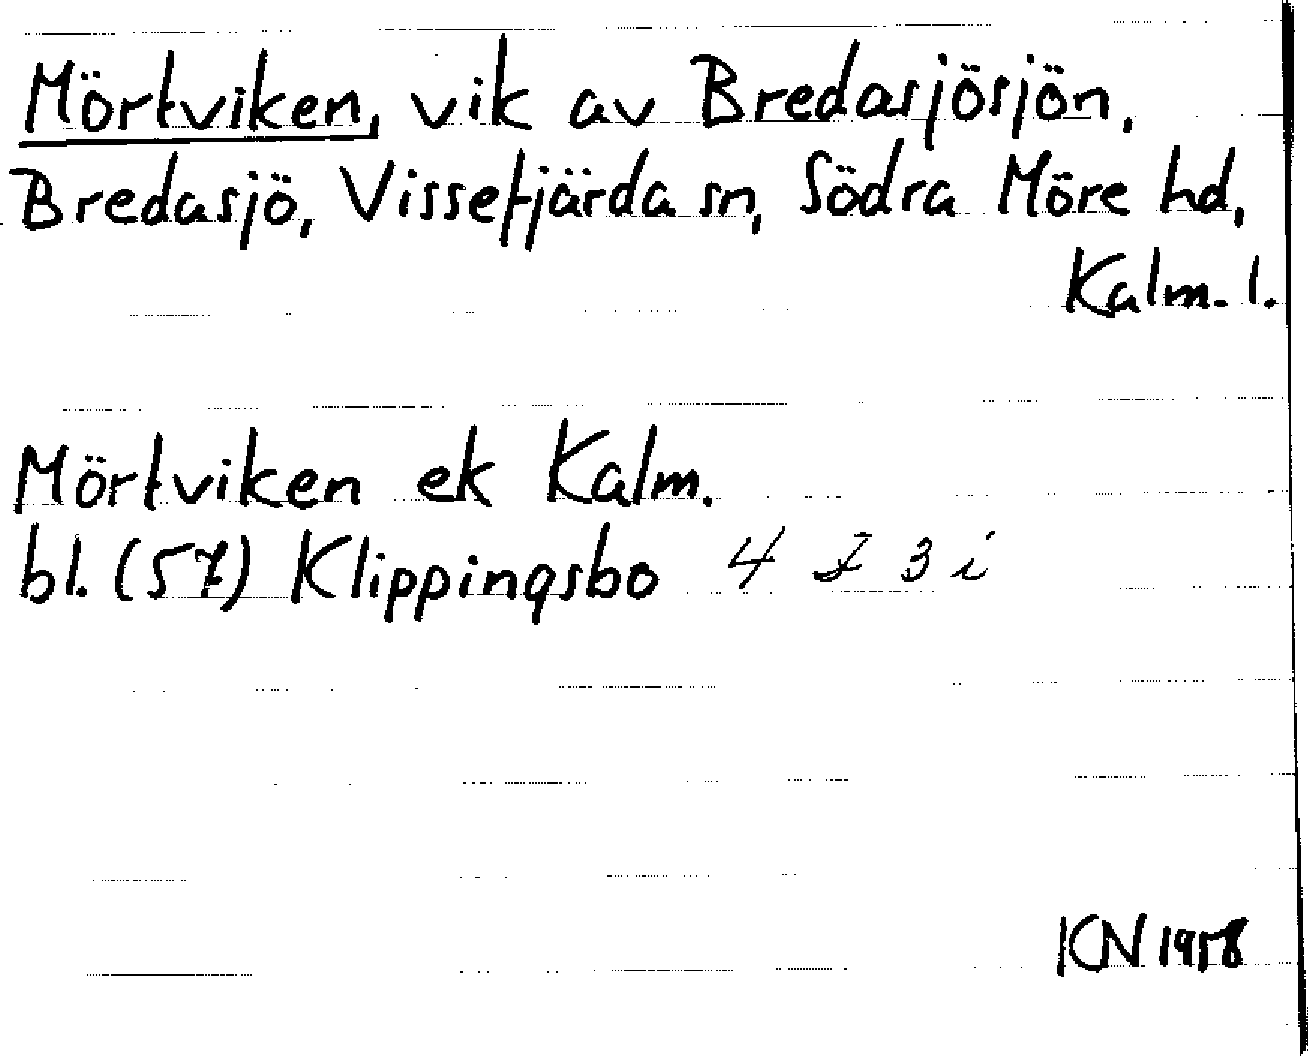 Mörtviken, vik av Bredasjösjön,
Bredasjö, Vissefjärda sn, Södra Möre hd,
Kalm. l.
Mörtviken ek Kalm.
bl. (57) Klippingsbo 4 F 3 i
KN 1958